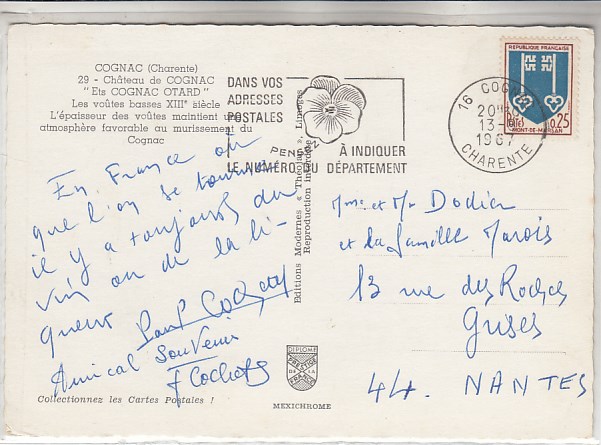 COGNAC (Charente)
29 - Château de COGNAC
" Ets COGNAC OTARD "
Les voûtes basses XIIIe siècle
L'épaisseur des voûtes maintient une
atmosphère favorable au murissement du
Cognac
DANS VOS
ADRESSES
POSTALES
PENSEZ À INDIQUER
LE NUMÉRO DU DÉPARTEMENT
16 COGNAC
13-
1967
CHARENTE
REPUBLIQUE FRANÇAISE
0,25
MONT-DE-MARSAN
En France où
que l'on se tourne
il y a toujours du
vin ou de la li-
queur
Paul
Amical Souvenir
Editions Modernes « Théojac », Limoges
Reproduction interdite
Mme et Mr
et la famille Marois
13 rue des Roches
Grises
44. NANTES
DIPLOME
PRESTIGE
DE LA
FRANCE
Collectionnez les Cartes Postales !
MEXICHROME